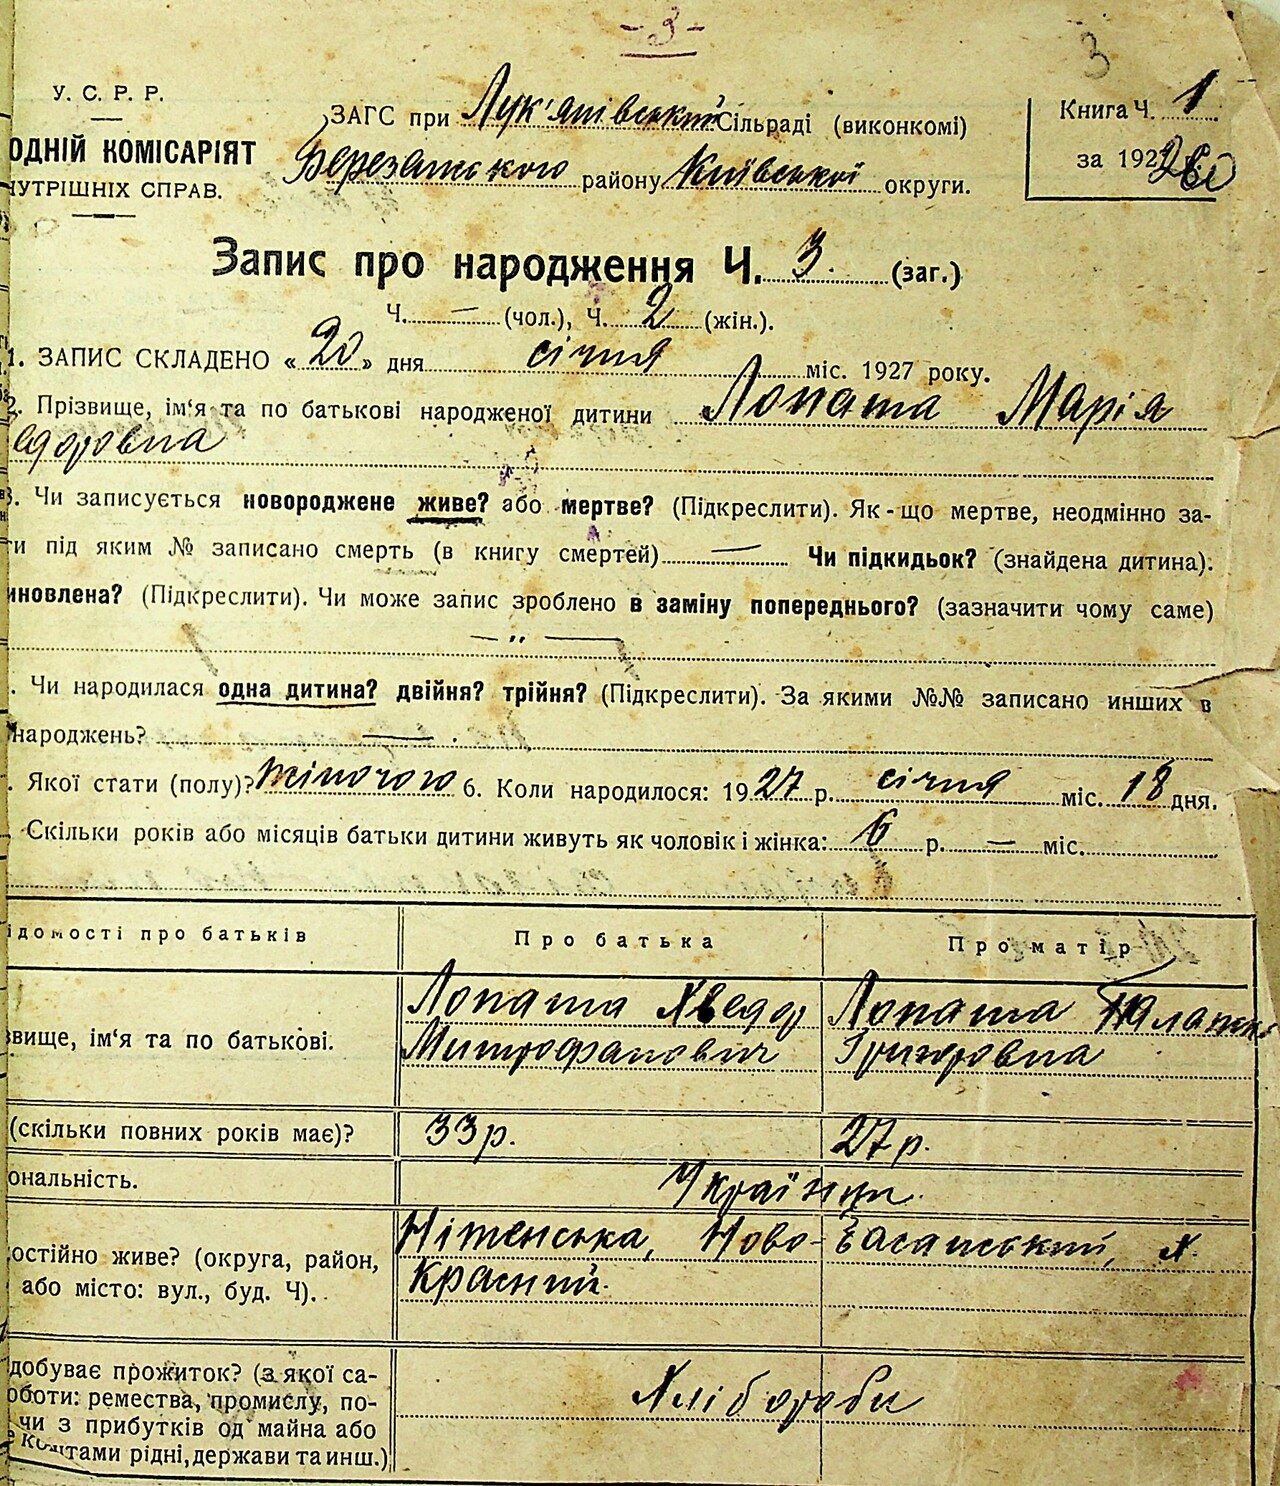 - 3 -
3
У. С. Р. Р.
ОДНІЙ КОМІСАРІЯТ
НУТРІШНІХ СПРАВ.
ЗАГС при Лук'янівський Сільраді (виконкомі)
Березанського району Київської округи.
Книга Ч. 1
за 192
Запис про народження Ч. 3. (заг.)
Ч. — (чол.), Ч. 2 (жін.).
1. ЗАПИС СКЛАДЕНО «20» дня січня міс. 1927 року.
2. Прізвище, ім'я та по батькові народженої дитини Лопата Марія
едоровна
3. Чи записується новороджене живе? або мертве? (Підкреслити). Як-що мертве, неодмінно за-
ти під яким № записано смерть (в книгу смертей) — Чи підкидьок? (знайдена дитина):
иновлена? (Підкреслити). Чи може запис зроблено в заміну попереднього? (зазначити чому саме)
— „ —
. Чи народилася одна дитина? двійня? трійня? (Підкреслити). За якими №№ записано инших в
народжень? — .
. Якої стати (полу)? жіночою 6. Коли народилося: 1927 р. січня міс. 18 дня.
Скільки років або місяців батьки дитини живуть як чоловік і жінка: 6 р. — міс.
ідомості про батьків Про батька Про матір
звище, ім'я та по батькові. Лопата Хведор Лопата
Митрофанович Григоровна
(скільки повних років має)? 33 р. 27 р.
ональність. Українци.
остійно живе? (округа, район, Ніженська, Ново-Басанський, х.
або місто: вул., буд. Ч). Красний.
добуває прожиток? (з якої са-
оботи: ремества, промислу, по- Хлібороби
чи з прибутків од майна або
коштами рідні, держави та инш.)